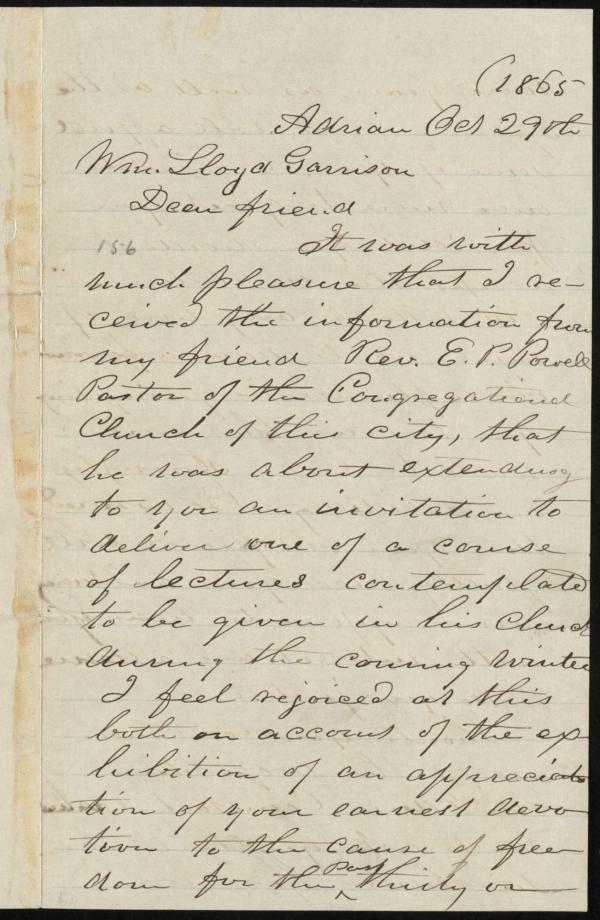 (1865
Adrian Oct 29th
Wm. Lloyd Garrison
Dear friend
156
It was with
much pleasure that I re-
ceived the information from
my friend Rev. E. P. Powell
Pastor of the Congregational
Church of this city, that
he was about extending
to you an invitation to
deliver one of a course
of lectures contemplated
to be given in his Church
during the coming winter
I feel rejoiced at this
both on account of the ex-
hibition of an apprecia-
tion of your earnest devo
tion to the cause of free
dom for the past thirty or